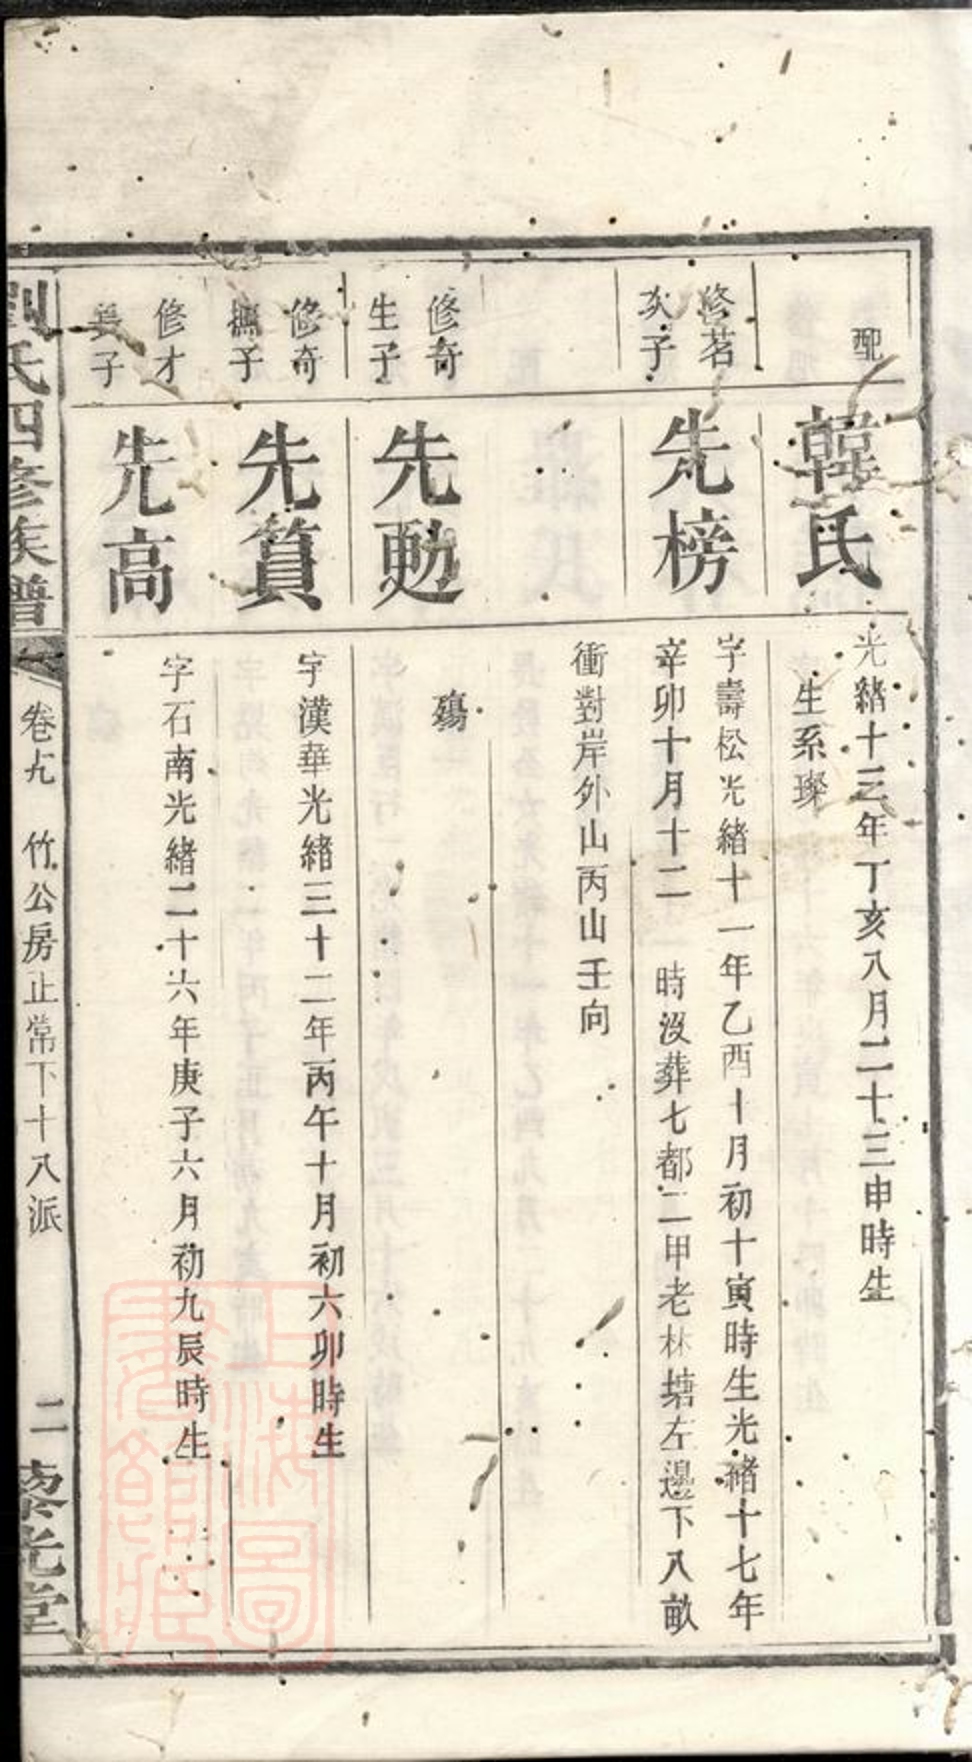 配
韓氏
光緒十三年丁亥八月二十三申時生
生系璨
修茗
炎子
先榜
字壽松光緒十一年乙酉十月初十寅時生光緒十七年
辛卯十月十二 時沒葬七都二甲老林塘左邊下八畝
衝對岸外山丙山壬向
修奇
生子
先勉
殤
修奇
撫子
先賞
字漢華光緒三十二年丙午十月初六卯時生
修才
子
先高
字石南光緒二十六年庚子六月初九辰時生
劉氏四修族譜
卷九 竹公房止常下十八派
二
藜光堂
上海圖書館藏